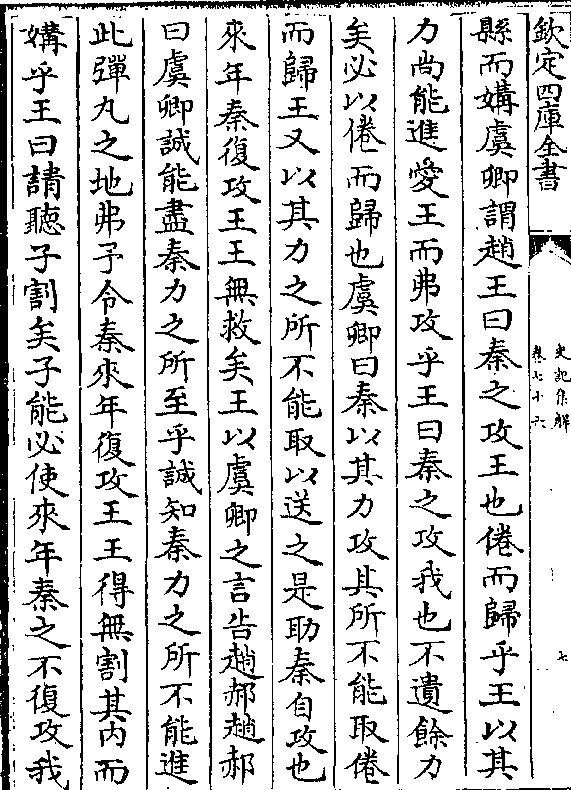 欽定四庫全書
史記集解
卷七十六
七
縣而媾虞卿謂趙王曰秦之攻王也倦而歸乎王以其
力尚能進愛王而弗攻乎王曰秦之攻我也不遺餘力
矣必以倦而歸也虞卿曰秦以其力攻其所不能取倦
而歸王又以其力之所不能取以送之是助秦自攻也
來年秦復攻王王無救矣王以虞卿之言告趙郝趙郝
曰虞卿誠能盡秦力之所至乎誠知秦力之所不能進
此彈丸之地弗予令秦來年復攻王王得無割其内而
媾乎王曰請聽子割矣子能必使來年秦之不復攻我